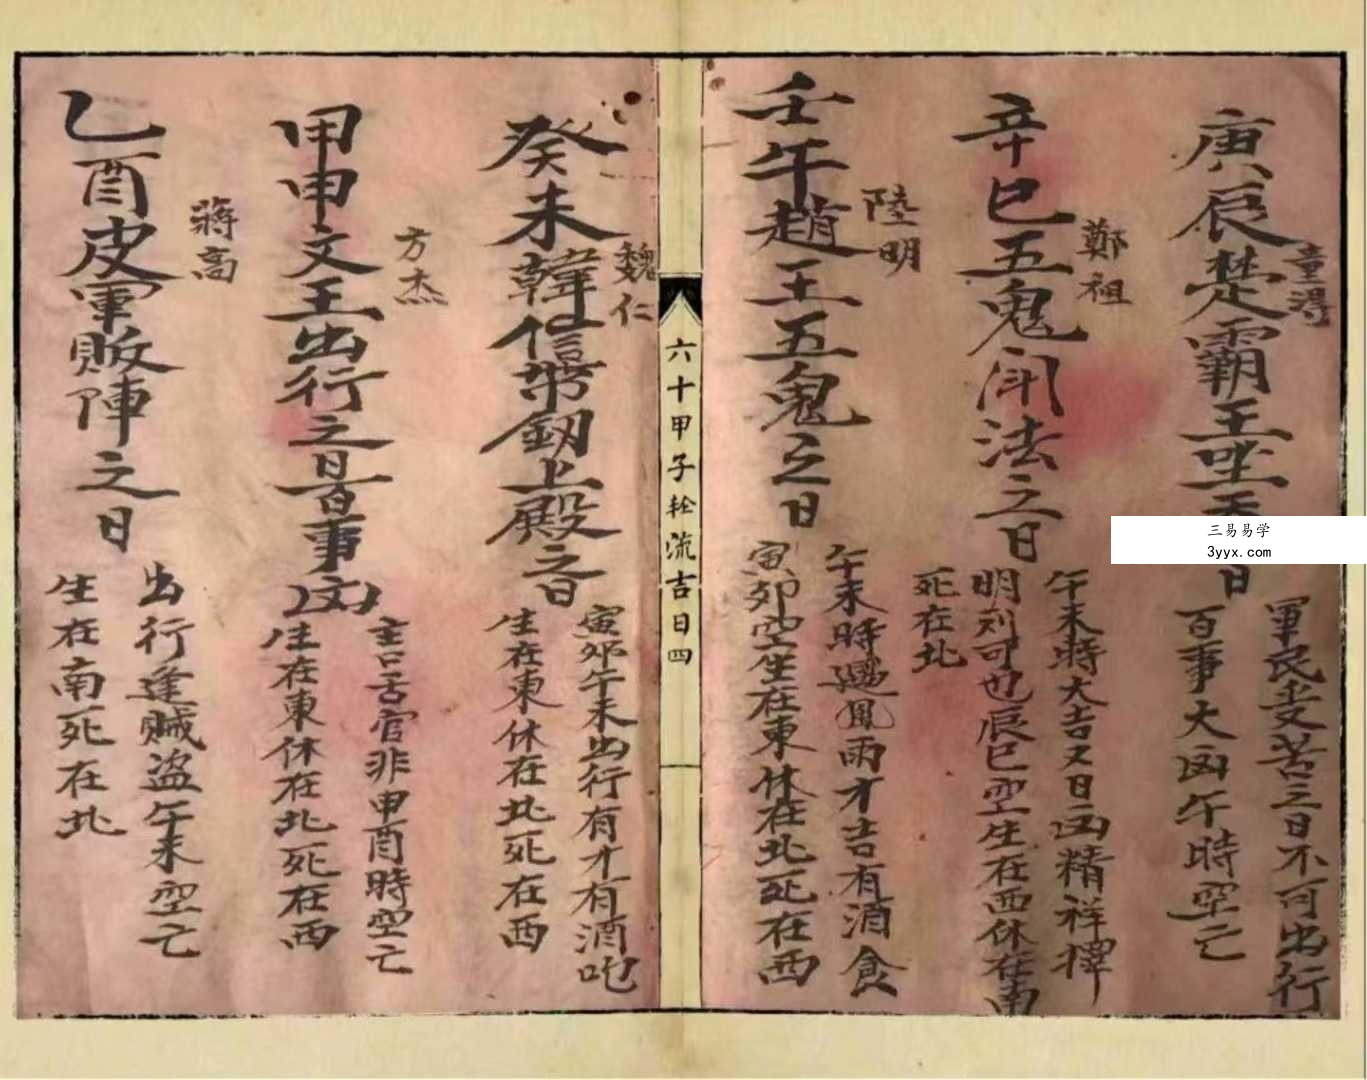 庚辰楚霸王坐天
日
童得
軍民受苦三日不可出行
百事大凶午時空亡
辛巳五鬼闹法之日
鄭祖
午未時大吉又日凶精祥擇
明列可也辰巳空生在西休在南
死在北
壬午趙王五鬼之日
陸明
午未時遇風雨才吉有酒食
寅卯空生在東休在北死在西
六十甲子轮流吉日四
癸未韓信帶劔上殿之日
魏仁
寅卯午未出行有才有酒吃
生在東休在北死在西
甲申文王出行之日百事凶
方杰
主口舌官非申酉時空亡
生在東休在北死在西
乙酉皮軍敗陣之日
蔣高
出行逢贼盗午未空亡
生在南死在北
三易易学
3yyx.com